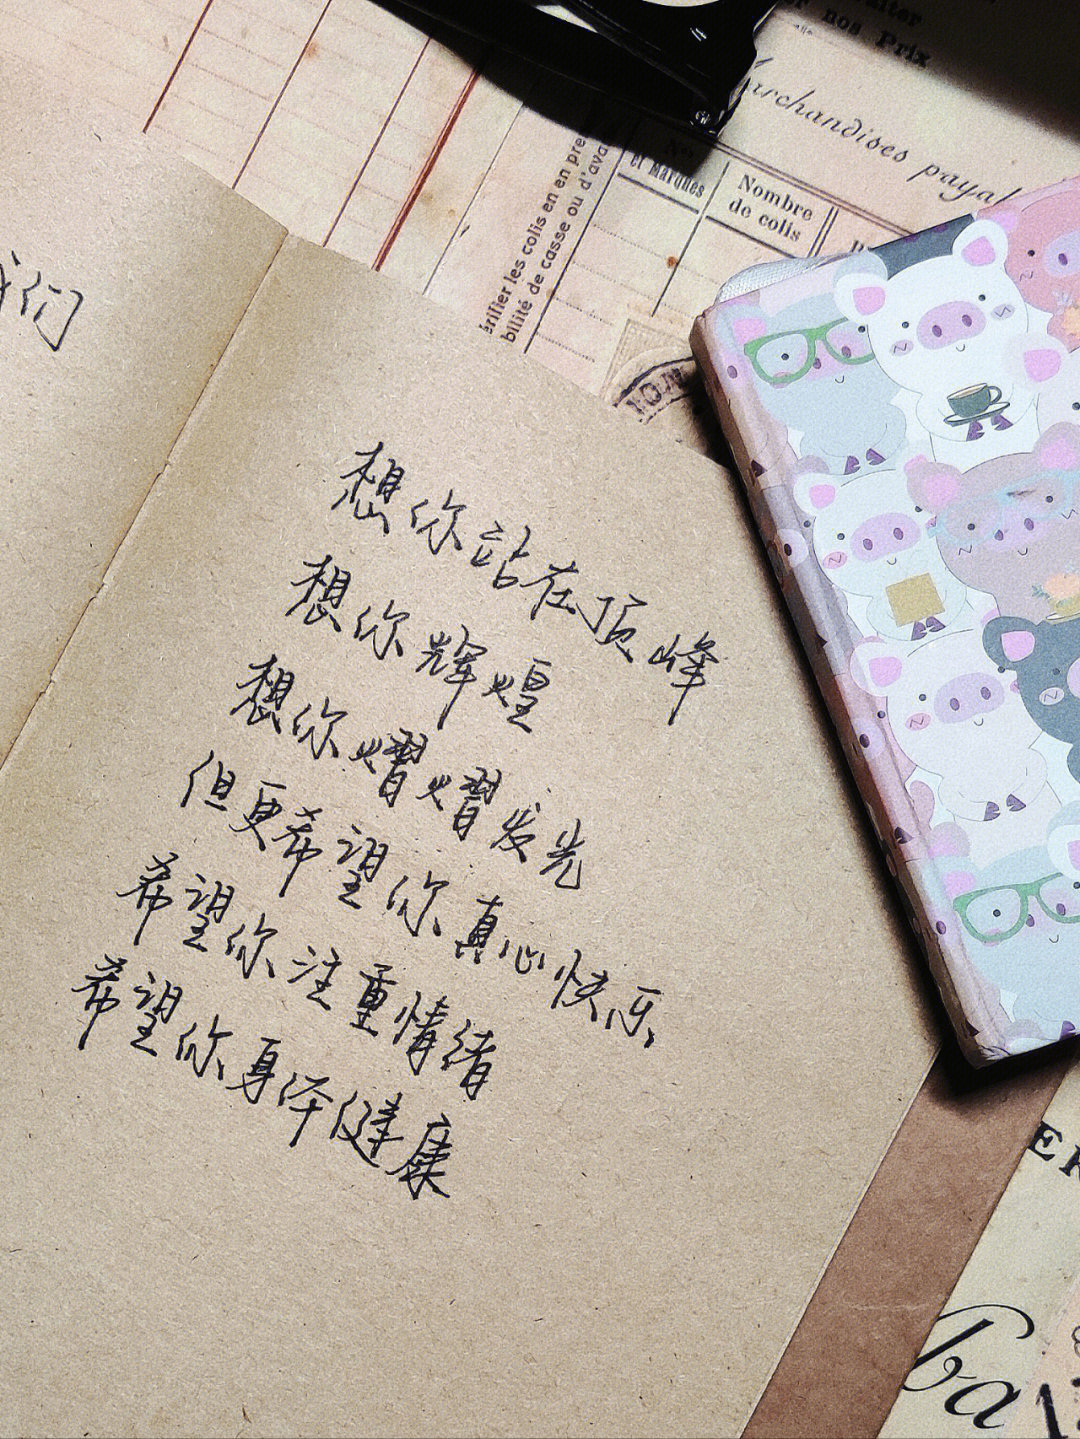 or nos Prix
Marchandises payal
Nos
et marques
Nombre
de colis
vérifier les colis en en pre
bilité de casse ou d'ava
们
想你站在顶峰
想你辉煌
想你熠熠发光
但更希望你真心快乐
希望你注重情绪
希望你身体健康
ba